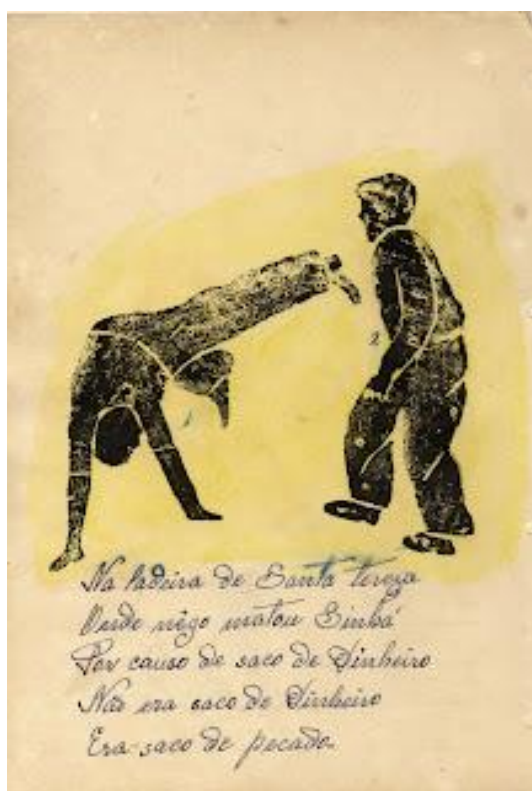 2
Na ladeira de Santa tereza
Onde nêgo matou Sinhá
Por causo de saco de Dinheiro
Não era saco de Dinheiro
Era saco de pecado.